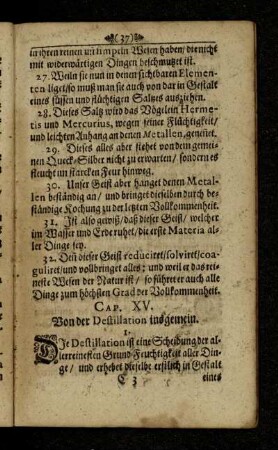 (37)
in ihren reinen un simpeln Wesen haben/ die nicht
mit widerwärtigen Dingen beschmutzet ist.
27. Weiln sie nun in denen sichtbaren Elemen-
ten liget/ so muß man sie auch von dar in Gestalt
eines süssen und flüchtigen Saltzes ausziehen.
28. Dieses Saltz wird das Vögelein Herme-
tis und Mercurius, wegen seiner Flüchtigkeit/
und leichten Anhang an denen Metallen, genenet.
29. Dieses alles aber stehet von dem gemei-
nen Queck-Silber nicht zu erwarten/ sondern es
fleucht im starcken Feur hinweg.
30. Unser Geist aber hanget denen Metal-
len beständig an/ und bringet dieselben durch be-
ständige Kochung zu der letzten Vollkommenheit.
31. Ist also gewiß/ daß dieser Geist/ welcher
im Wasser und Erde ruhet/ die erste Materia al-
ler Dinge sey.
32. Deñ dieser Geist reduciret/ solviret/ co-
aguliret/ und vollbringet alles; und weil er das rei-
neste Wesen der Natur ist/ so führet er auch alle
Dinge zum höchsten Grad der Vollkommenheit.
CAP. XV.
Von der Destillation ins gemein.
1.
DJe Destillation ist eine Scheibung der al-
lerreinesten Grund-Feuchtigkeit aller Din-
ge/ und erhebet dieselbe erstlich in Gestalt
C 3 eines